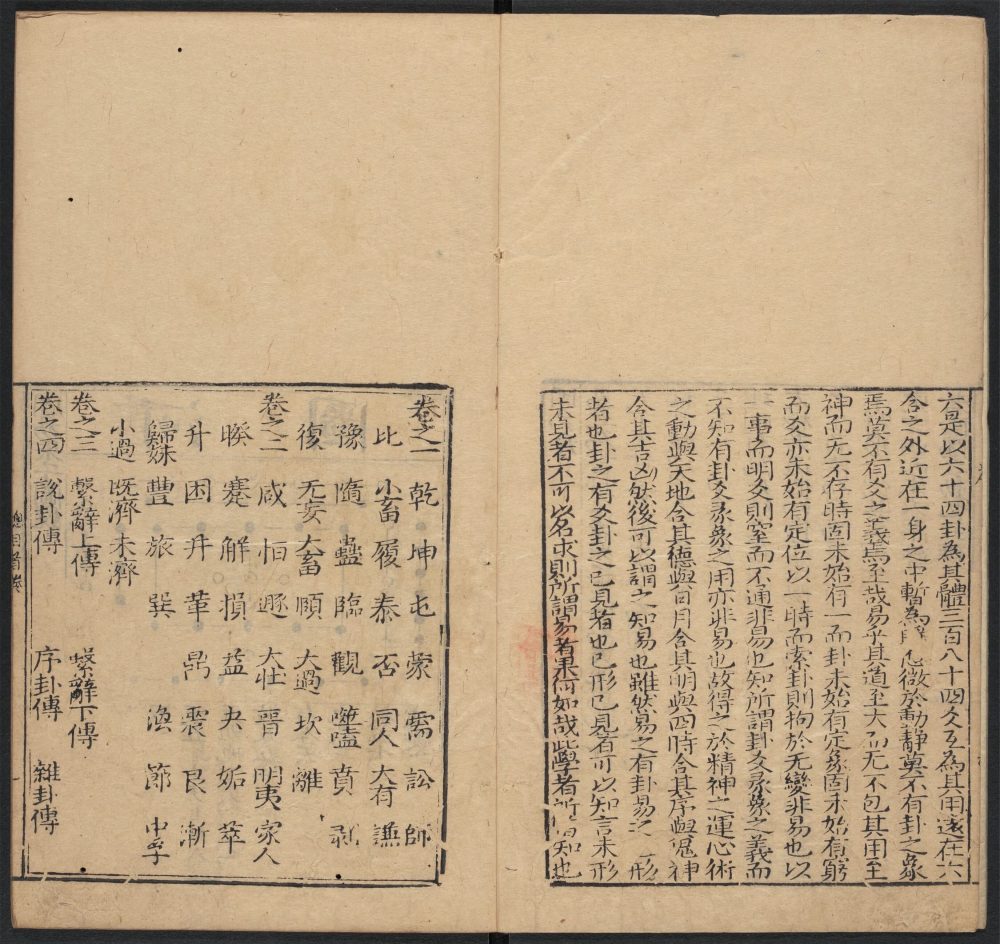 六是以六十四卦為其體三百八十四爻互為其用遠在六
合之外近在一身之中暫為瞬息微於動靜莫不有卦之象
焉莫不有爻之義焉至哉易乎其道至大而无不包其用至
神而无不存時固未始有一而卦未始有定象事固未始有窮
而爻亦未始有定位以一時而索卦則拘於无變非易也以
一事而明爻則窒而不通非易也知所謂卦爻彖象之義而
不知有卦爻彖象之用亦非易也故得之於精神之運心術
之動與天地合其德與日月合其明與四時合其序與鬼神
合其吉凶然後可以謂之知易也雖然易之有卦易之形
者也卦之有爻卦之已見者也已形已見者可以知言未形
未見者不可以名求則所謂易者果何如哉此學者所當知也
卷之一 乾 坤 屯 蒙 需 訟 師
比 小畜 履 泰 否 同人 大有 謙
豫 隨 蠱 臨 觀 噬嗑 賁 剥
復 无妄 大畜 頤 大過 坎 離
卷之二 咸 恒 遯 大壯 晉 明夷 家人
睽 蹇 解 損 益 夬 姤 萃
升 困 井 革 鼎 震 艮 漸
歸妹 豐 旅 巽 渙 節 中孚
小過 既濟 未濟
卷之三 繫辭上傳 繫辭下傳
卷之四 說卦傳 序卦傳 雜卦傳